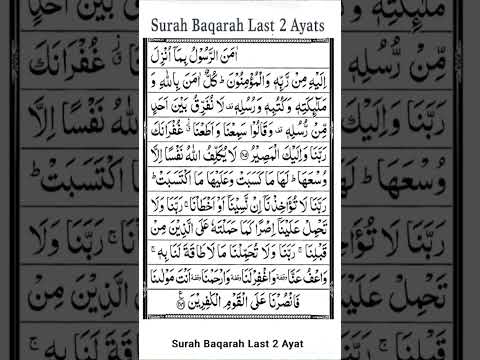 Surah Baqarah Last 2 Ayats
اٰمَنَ الرَّسُوْلُ بِمَاۤ اُنْزِلَ
اِلَيْهِ مِنْ رَّبِّهٖ وَالْمُؤْمِنُوْنَ ؕ كُلٌّ اٰمَنَ بِاللّٰهِ وَ
مَلٰٓئِكَتِهٖ وَكُتُبِهٖ وَرُسُلِهٖ ۟ لَا نُفَرِّقُ بَيْنَ اَحَدٍ
مِّنْ رُّسُلِهٖ ۟ وَقَالُوْا سَمِعْنَا وَاَطَعْنَا ۫ غُفْرَانَكَ
رَبَّنَا وَاِلَيْكَ الْمَصِيْرُ ﴿۲۸۵﴾ لَا يُكَلِّفُ اللّٰهُ نَفْسًا اِلَّا
وُسْعَهَا ؕ لَهَا مَا كَسَبَتْ وَعَلَيْهَا مَا اكْتَسَبَتْ ؕ
رَبَّنَا لَا تُؤَاخِذْنَاۤ اِنْ نَّسِيْنَاۤ اَوْ اَخْطَاْنَا ۚ رَبَّنَا وَلَا
تَحْمِلْ عَلَيْنَاۤ اِصْرًا كَمَا حَمَلْتَهٗ عَلَى الَّذِيْنَ مِنْ
قَبْلِنَا ۚ رَبَّنَا وَلَا تُحَمِّلْنَا مَا لَا طَاقَةَ لَنَا بِهٖ ۚ
وَاعْفُ عَنَّا ۥ وَاغْفِرْ لَنَا ۥ وَارْحَمْنَا ۥ اَنْتَ مَوْلٰىنَا
فَانْصُرْنَا عَلَى الْقَوْمِ الْكٰفِرِيْنَ ﴿۲۸۶﴾
Surah Baqarah Last 2 Ayat